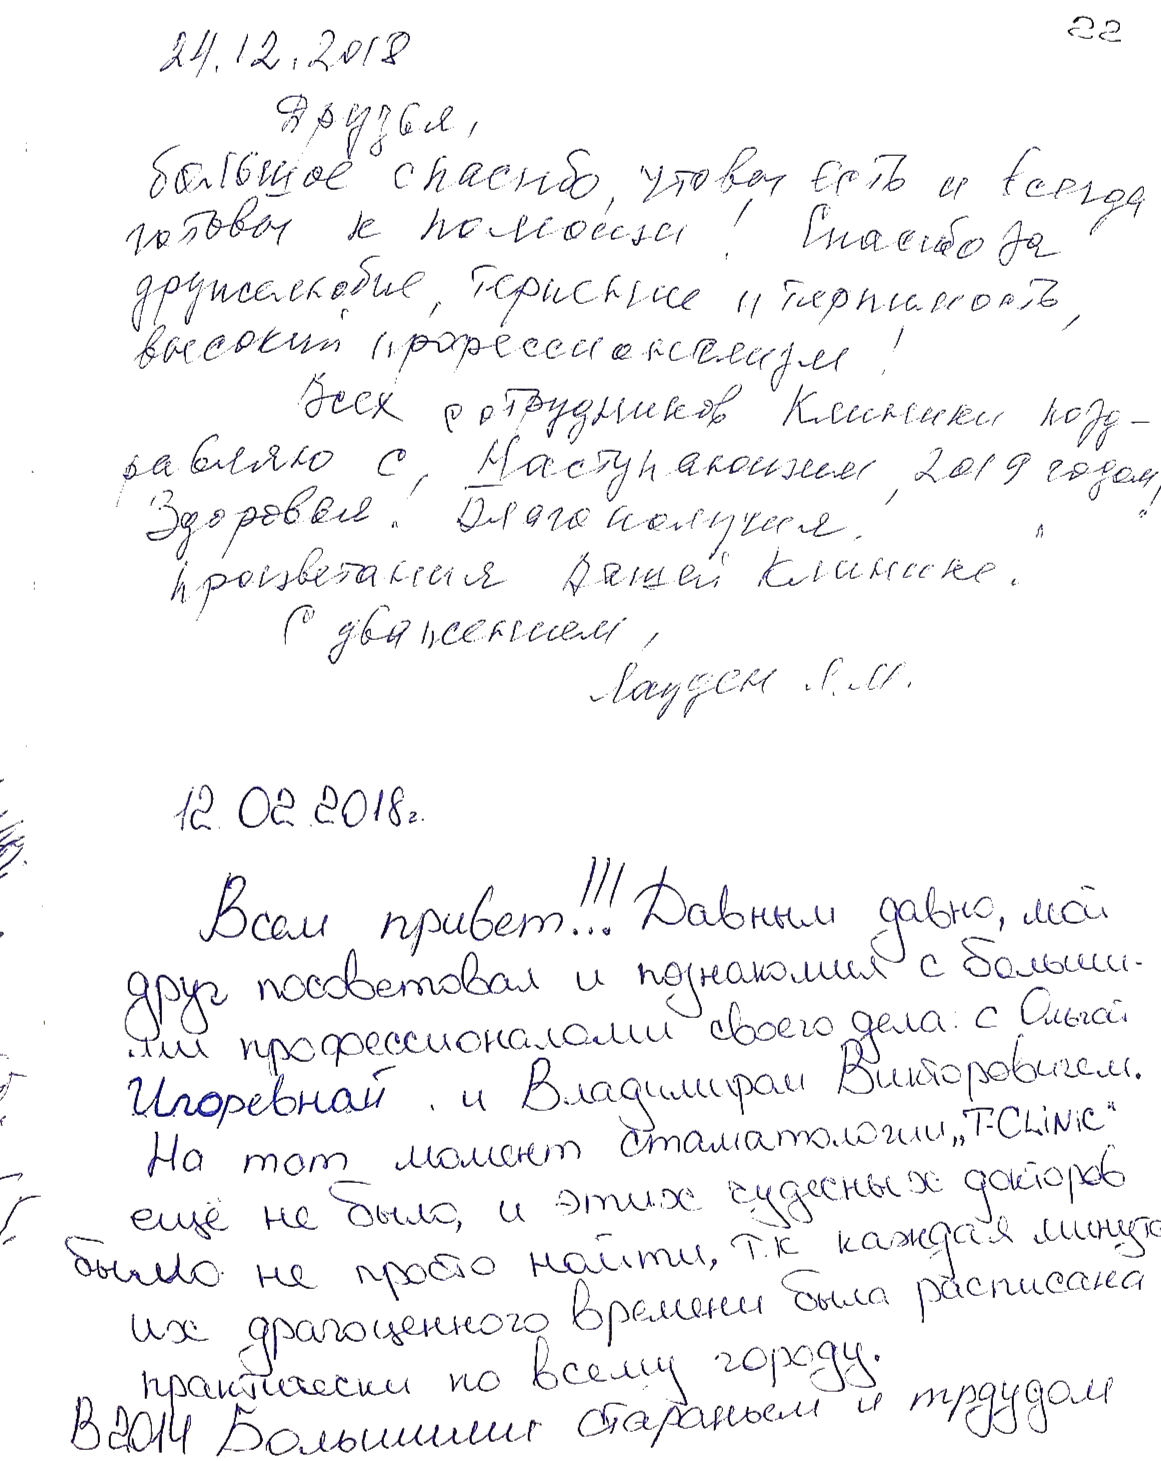 22
24.12.2018
Друзья,
большое спасибо, что вы есть и всегда
готовы к помощи! Спасибо за
дружелюбие, терпение и терпимость,
высокий профессионализм!
Всех сотрудников Клиники позд-
равляю с Наступающим, 2019 годом!
Здоровья! Благополучия.
процветания Вашей Клинике.
С уважением,
12.02.2018г.
Всем привет!!! Давным давно, мой
друг посоветовал и познакомил с больши-
ми профессионалами своего дела: с Ольгой
Игоревной и Владимиром Викторовичем.
На тот момент стаматологии „T-CLiNiC“
ещё не было, и этих чудесных докторов
было не просто найти, т.к каждая минута
их драгоценного времени была расписана
практически по всему городу.
В 2014 Большими стараньем и трдудом